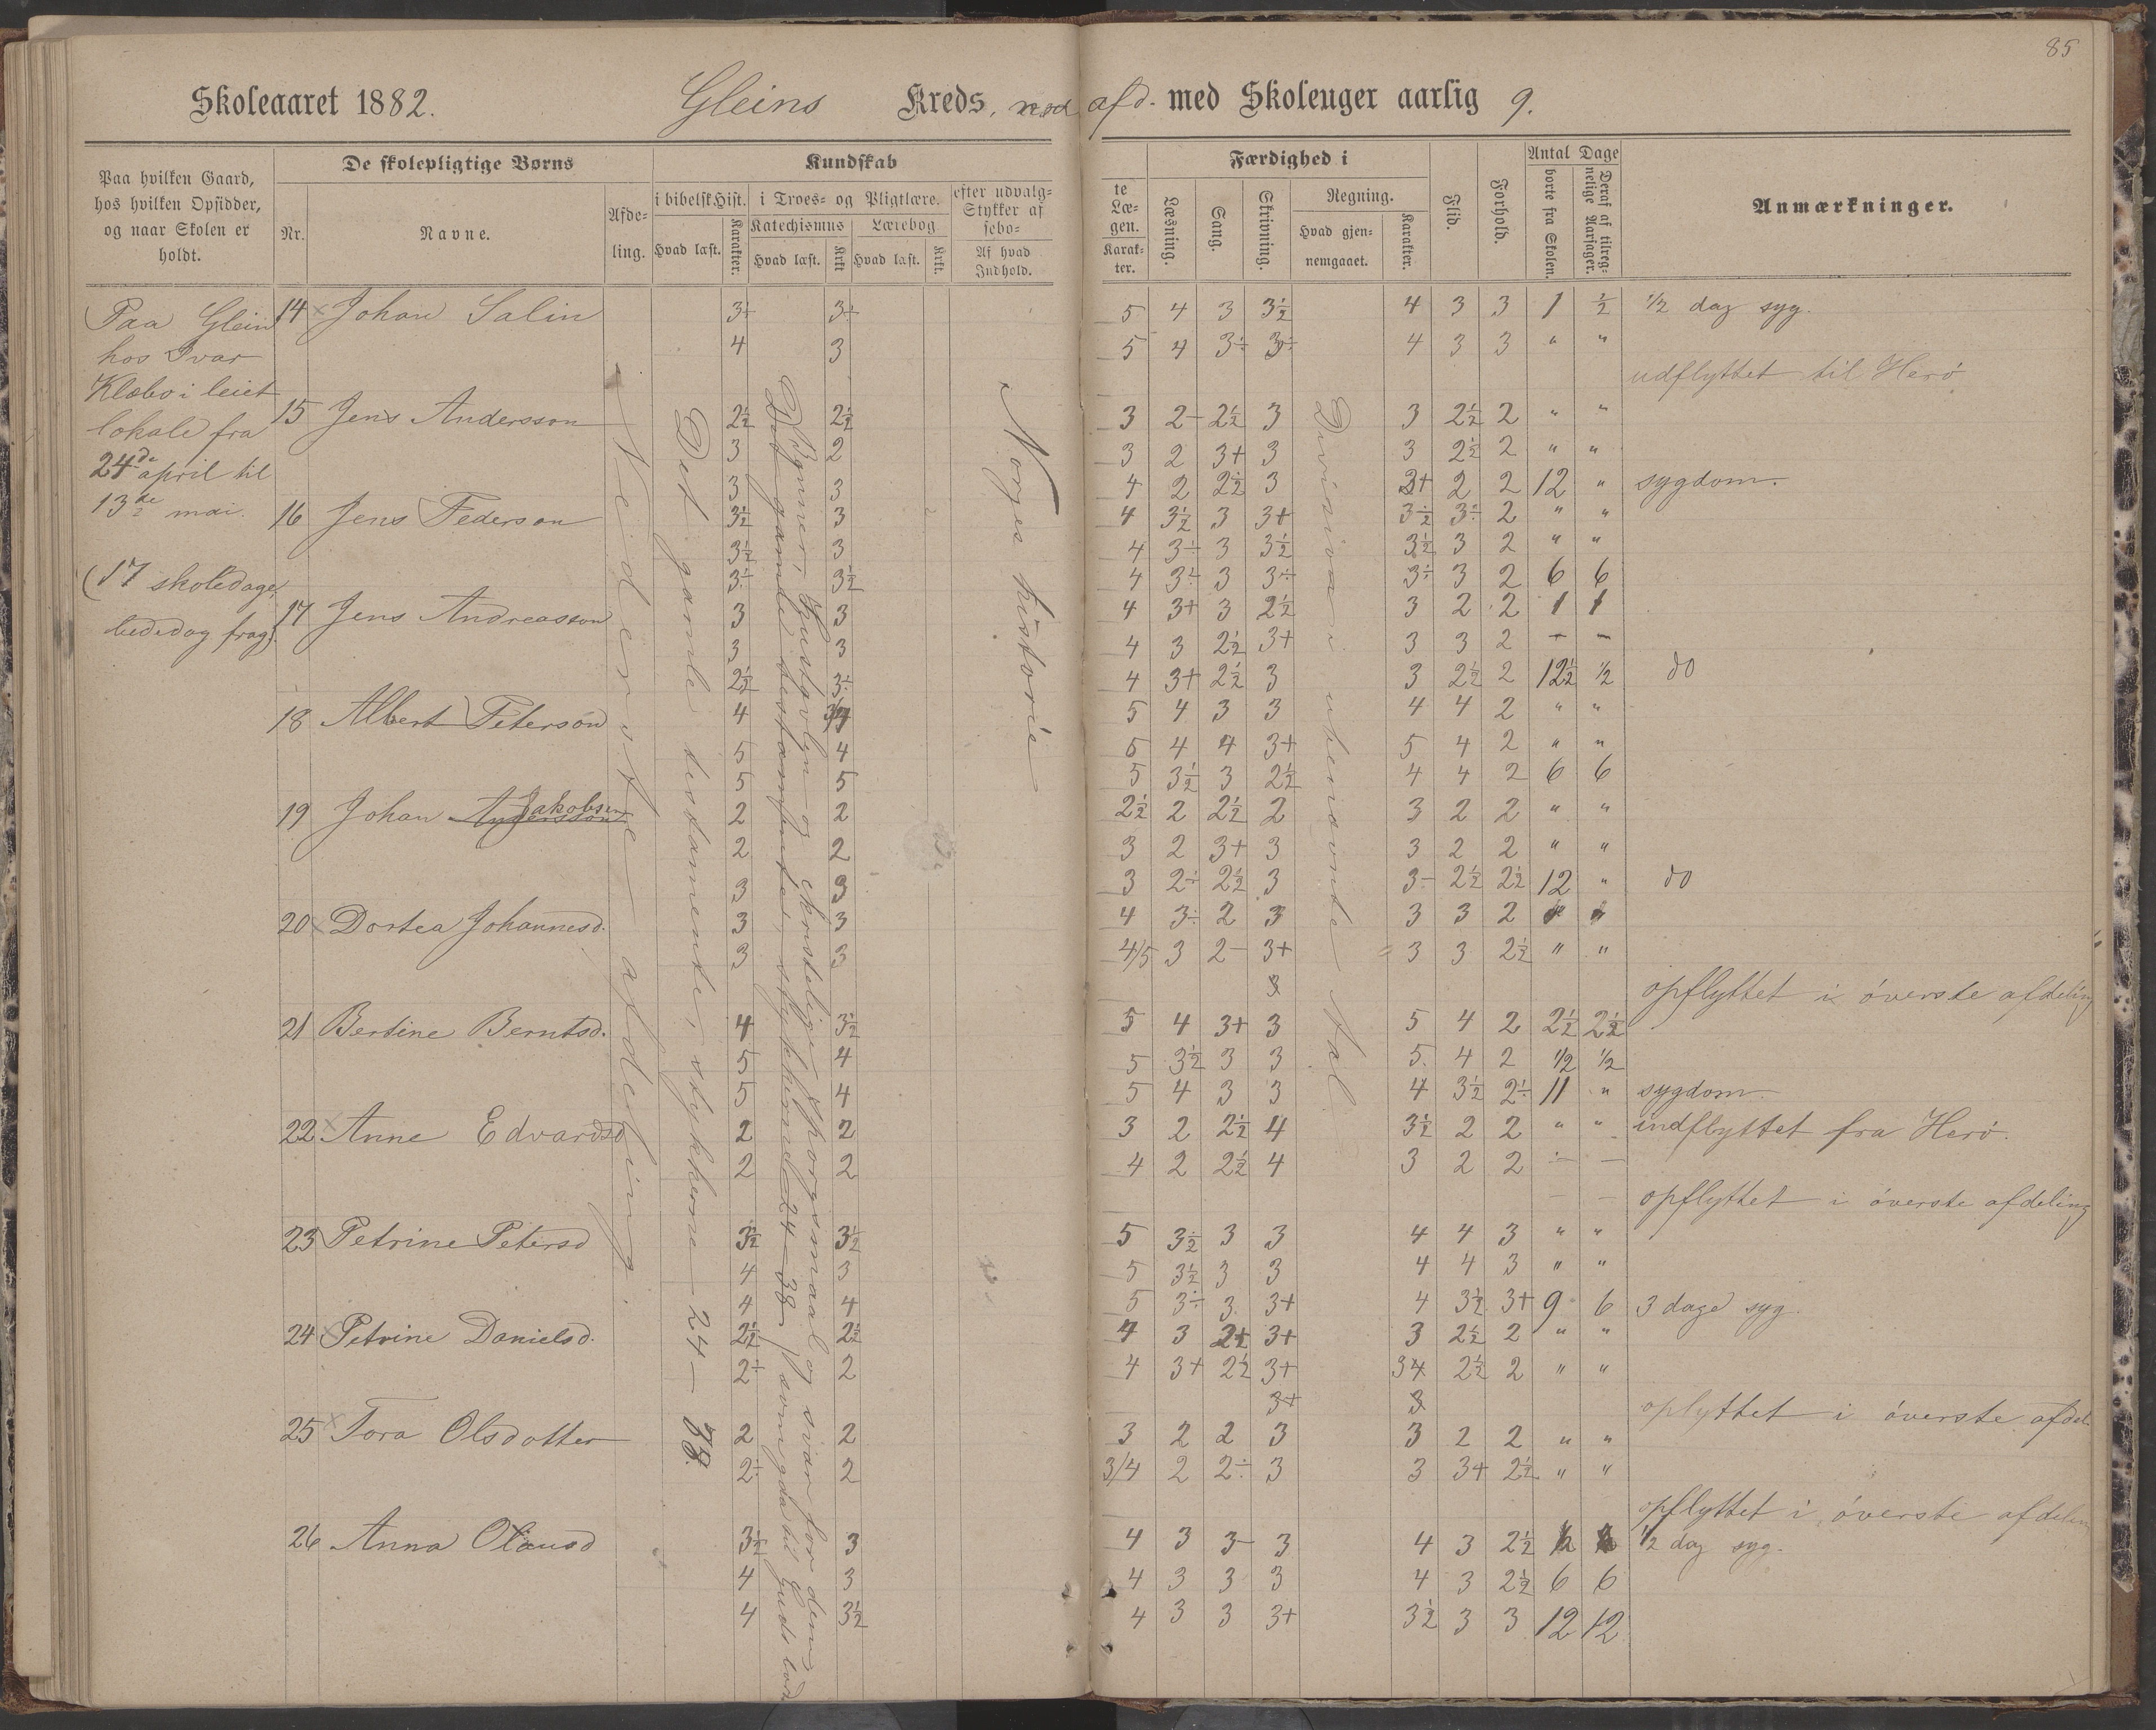 85
Skoleaaret 1882. Gleins Kreds, ned. afd. med Skoleuger aarlig 9.
Paa hvilken Gaard, hos hvilken Opsidder, og naar Skolen er holdt.
De skolepligtige Børns
Nr. Navne. Afdeling.
Kundskab
i bibelsk Hist. i Troes- og Pligtlære. efter udvalg-
Katechismus Lærebog Stykker af
sebo-
Hvad læst. Karakter. Hvad læst. Krkt. Hvad læst. Krkt. Af hvad Indhold.
te Læ-
gen.
Karak-
ter.
Færdighed i
Læsning. Sang. Skrivning. Regning. Hvad gjen-
nemgaaet. Karakter.
Flid. Forhold. Antal Dage
borte fra Skolen. Deraf af tilreg-
nelige Aarsager.
Anmærkninger.
Paa Glein
hos Ivar
Klæbo i leiet
lokale fra
24de april til
13de mai.
(17 skoledage,
bededag frag)
Nedenste afdeling.
Det gamle testamente, stykkerne 24 — 38.
Det gamle testamente, stykkerne 24 — 38
som gda til Guds bord
Norges historie
Division i ubenævnte tal
14 × Johan Salin 3÷ 3÷ 5 4 3 3½ 4 3 3 1 ½ ½ dag syg.
4 3 5 4 3÷ 3÷ 4 3 3 " "
udflyttet til Herö
15 Jens Andersson 2½ 2½ 3 2- 2½ 3 3 2½ 2 " "
3 2 3 2 3+ 3 3 2½ 2 " "
3 3 4 2 2½ 3 3+ 2 2 12 " sygdom.
16 Jens Pederson 3½ 3 4 3½ 3 3+ 3½ 3÷ 2 " "
3½ 3 4 3÷ 3 3½ 3½ 3 2 " "
3÷ 3½ 4 3÷ 3 3÷ 3÷ 3 2 6 6
17 Jens Andreasson 3 3 4 3+ 3 2½ 3 2 2 1 1
3 3 4 3 2½ 3+ 3 3 2 - -
2½ 3÷ 4 3+ 2½ 3 3 2½ 2 12½ ½ do
18 Albert Peterson 4 3/4 5 4 3 3 4 4 2 " "
5 4 5 4 4 3+ 5 4 2 " "
5 5 5 3½ 3 2½ 4 4 2 6 6
19 Johan Andersson Jakobsen 2 2 2½ 2 2½ 2 3 2 2 " "
2 2 3 2 3+ 3 3 2 2 " "
3 3 3 2÷ 2½ 3 3- 2½ 2½ 12 " do
20 × Dortea Johannesd. 3 3 4 3÷ 2 3 3 3 2 " "
3 3 4/5 3 2- 3+ 3 3 2½ " "
3 opflyttet i överste afdeling
21 Bertine Berntsd. 4 3½ 5 4 3+ 3 5 4 2 2½ 2½
5 4 5 3½ 3 3 5. 4 2 ½ ½
5 4 5 4 3 3 4 3½ 2÷ 11 " sygdom.
22 × Anne Edvardsd 2 2 3 2 2½ 4 3½ 2 2 " " indflyttet fra Herö.
2 2 4 2 2½ 4 3 2 2 - -
- - opflyttet i överste afdeling
23 Petrine Petersd 3½ 3½ 5 3½ 3 3 4 4 3 " "
4 3 5 3½ 3 3 4 4 3 " "
4 4 5 3÷ 3 3+ 4 3½ 3+ 9 6 3 dage syg.
24 × Petrine Danielsd. 2½ 2½ 4 3 2+ 3+ 3 2½ 2 " "
2÷ 2 4 3+ 2½ 3+ 34 2½ 2 " "
3+ 3 oplyttet i överste afdel.
25 × Tora Olsdotter 2 2 3 2 2 3 3 2 2 " "
2÷ 2 3/4 2 2÷ 3 3 3+ 2½ " "
opflyttet i överste afdelin
26 Anna Olausd 3½ 3 4 3 3- 3 4 3 2½ ½ ½ dag syg.
4 3 4 3 3 3 4 3 2½ 6 6
4 3½ 4 3 3 3+ 3½ 3 3 12 12